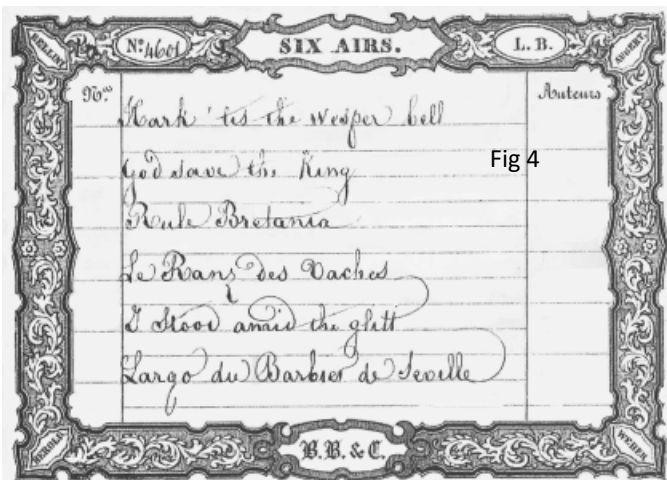 BELLINI Nº 4601 SIX AIRS. L. B. AUBERT
Nos Auteurs
Hark 'tis the wesper bell
God save the King
Fig 4
Rule Bretania
Le Rans des Vaches
I Stood amid the glitt
Largo du Barbier de Seville
HEROLD B. B. & C. WEBER